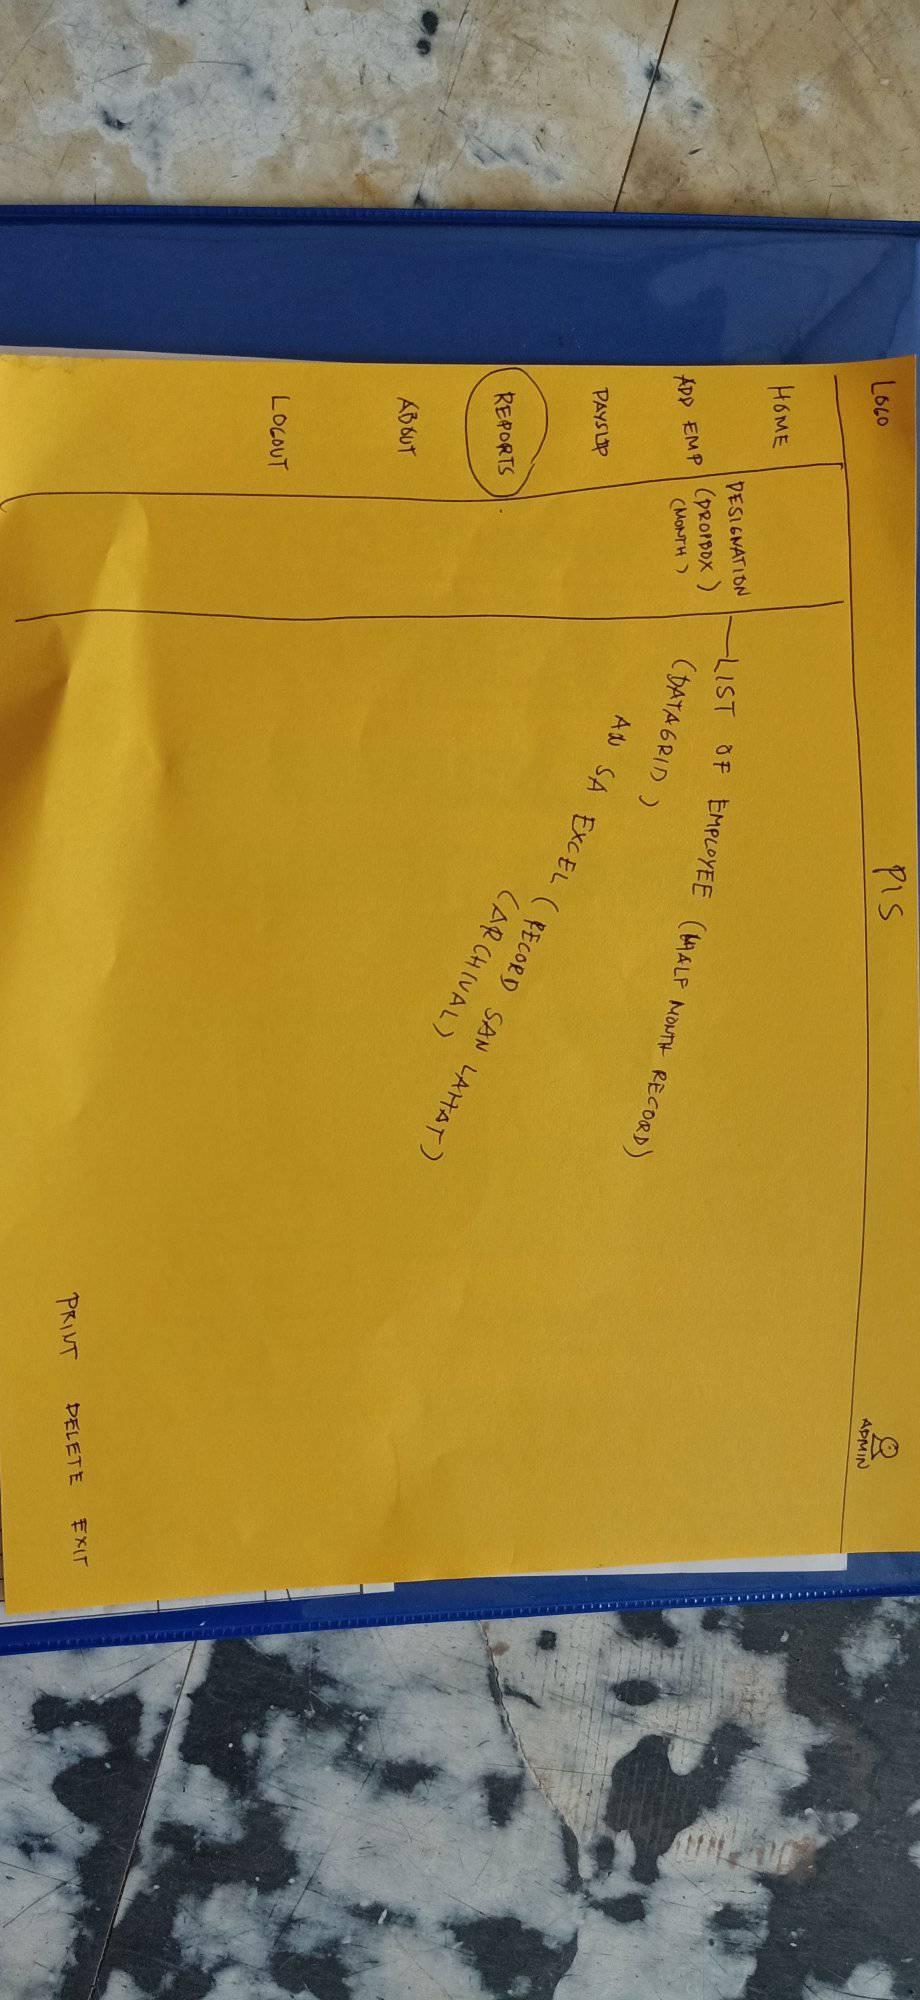 LOGO
PIS
ADMIN
HOME
ADD EMP
PAYSLIP
REPORTS
ABOUT
LOGOUT
DESIGNATION
(DROPBOX)
(MONTH)
LIST OF EMPLOYEE (HALF MONTH RECORD)
(DATAGRID)
AN SA EXCEL (RECORD SAN LAHAT)
(ARCHIVAL)
PRINT DELETE EXIT